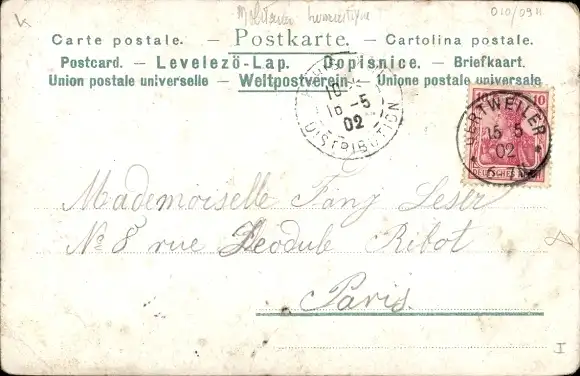 010/0911
Carte postale. — Postkarte. — Cartolina postale.
Postcard. — Levelező-Lap. — Dopisnice. — Briefkaart.
Union postale universelle — Weltpostverein — Unione postale universale
16 -5
02
DISTRIBUTION
10
DEUTSCHES
15 5
02
Mademoiselle Fany Leser
No 8 rue Théodule Ribot
Paris.
I